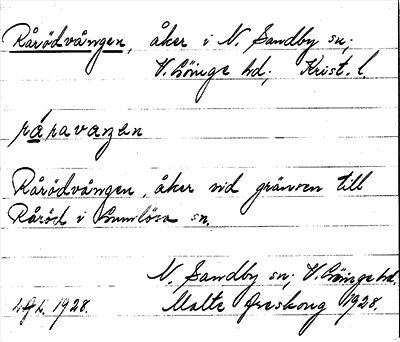 Rårödvången, åker i N. Sandby sn;
V. Göinge hd; Krist. l.
råravaŋen
Rårödvången, åker vid gränsen till
Råröd i Brunnlösa sn.
N. Sandby sn; V. Göinge hd.
1928. Malte Areskoug 1928.